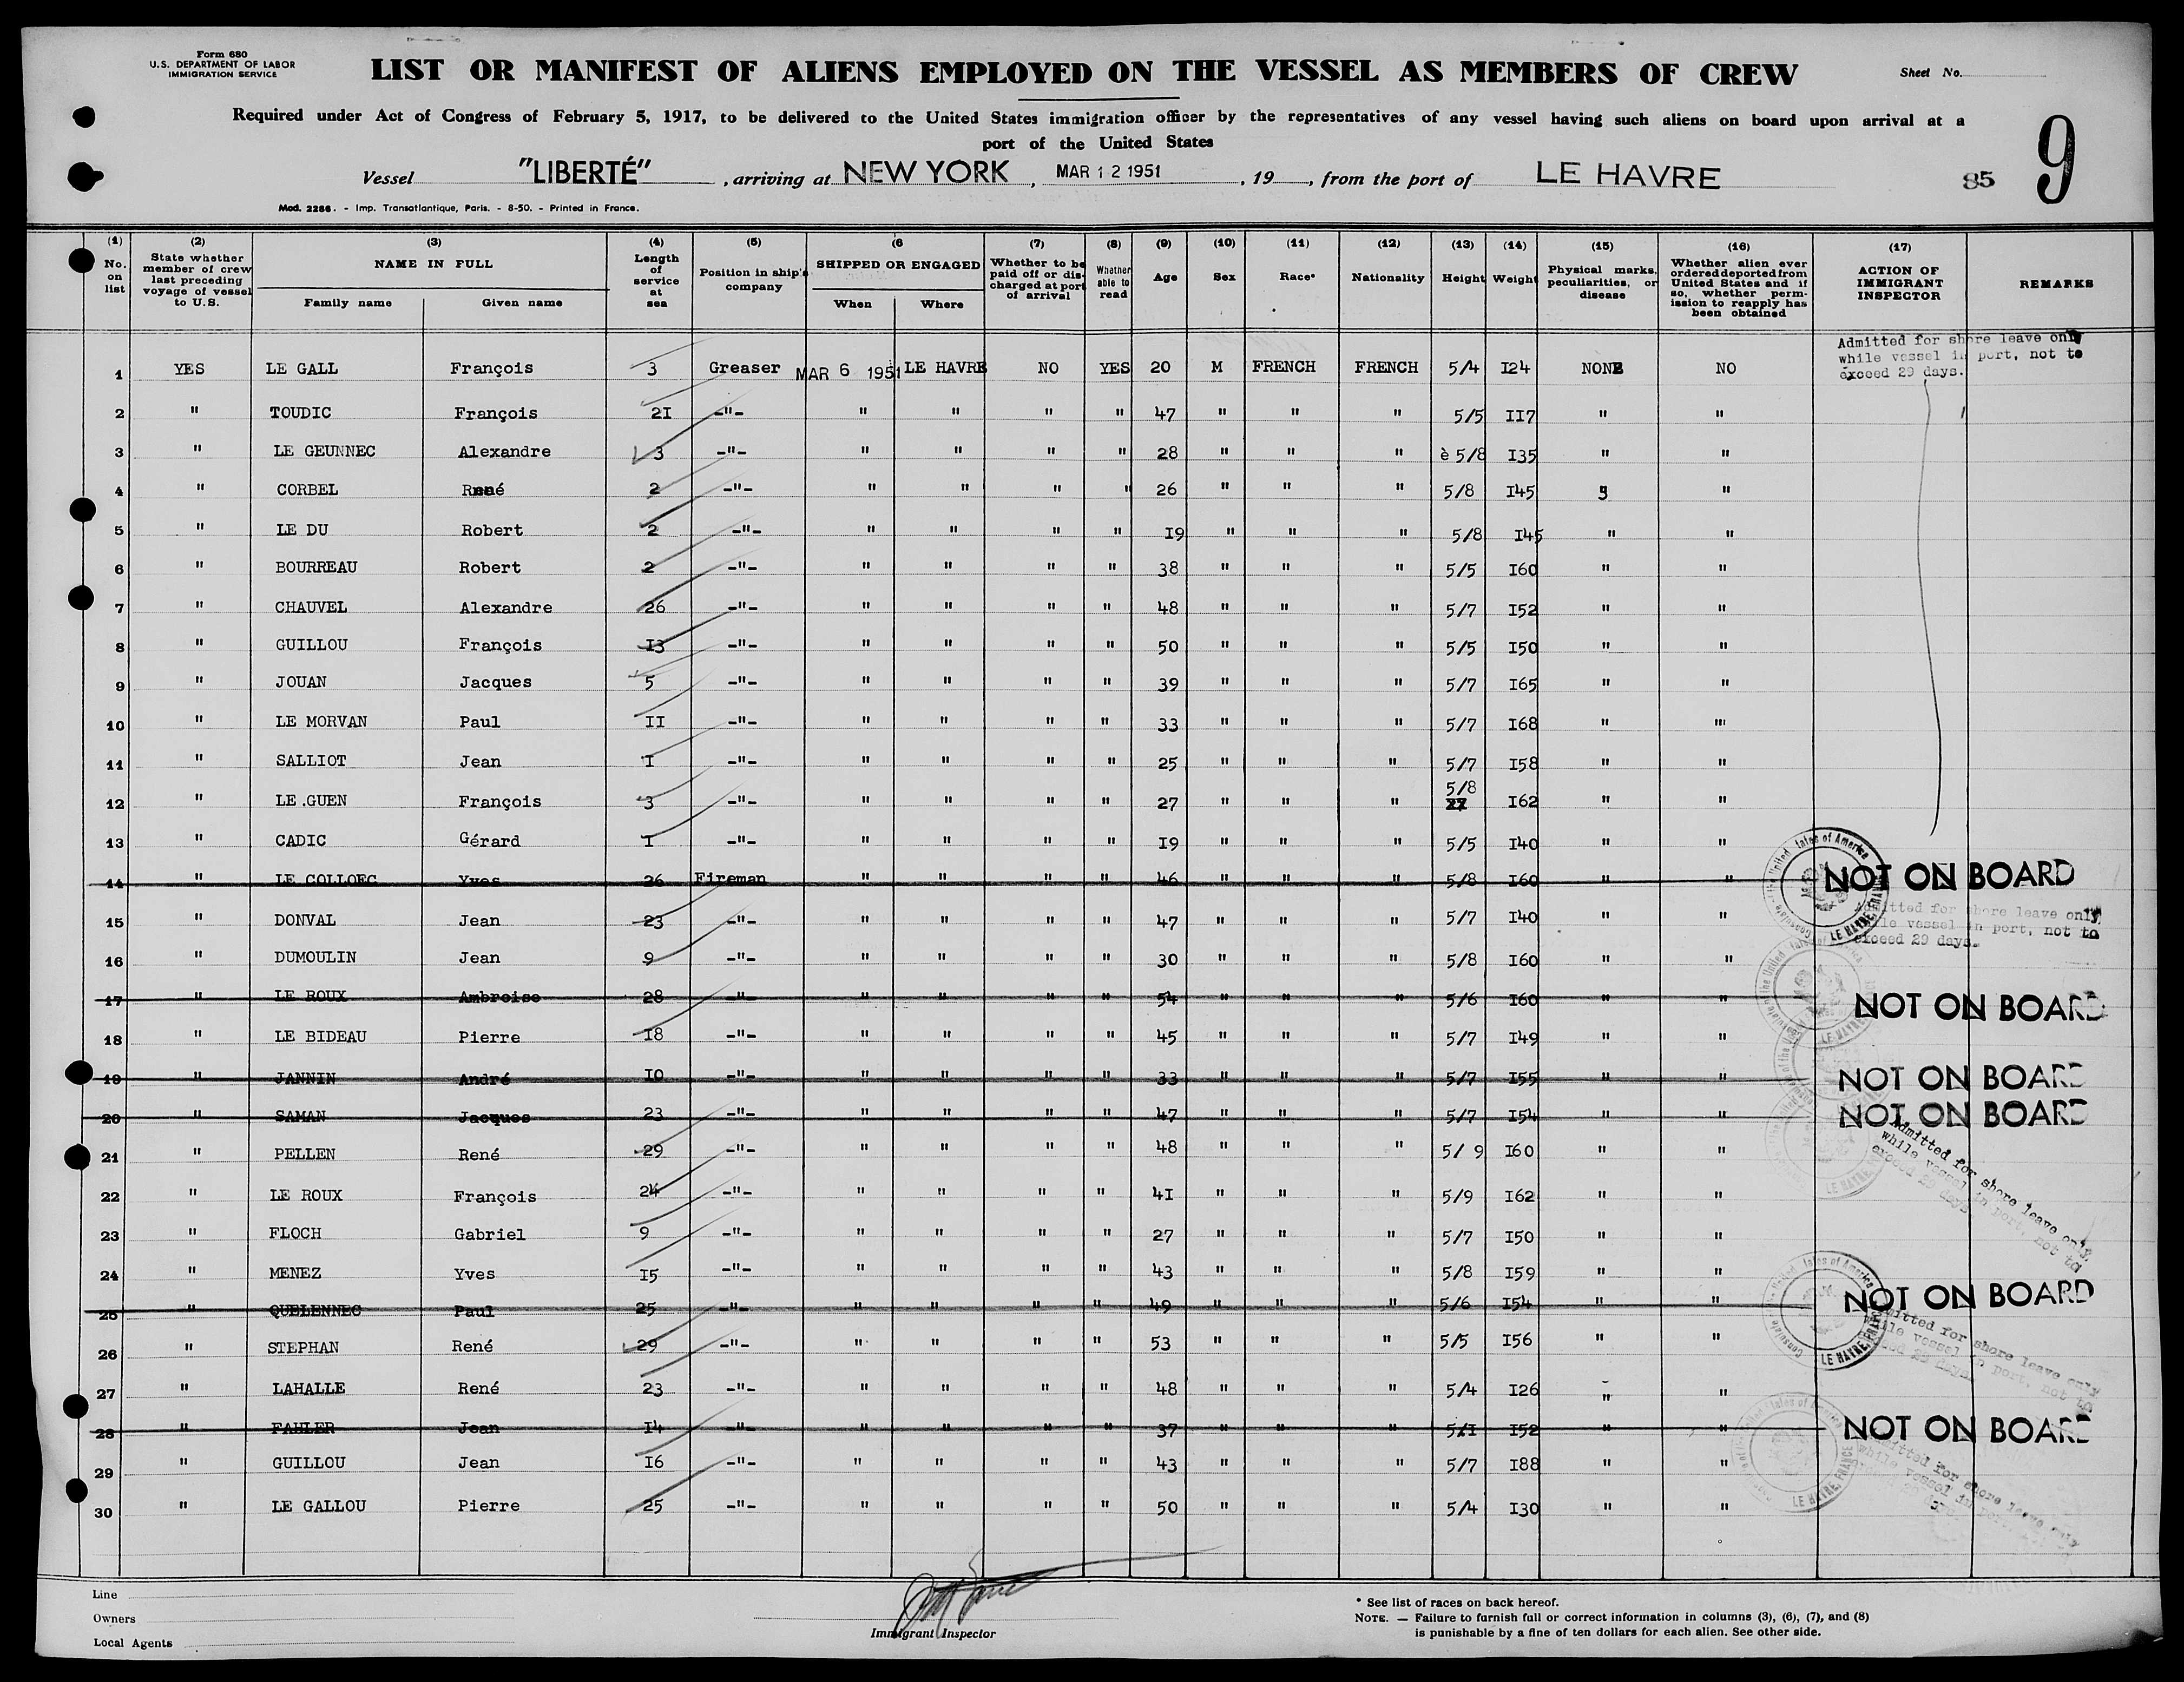 Form 680
U.S. DEPARTMENT OF LABOR
IMMIGRATION SERVICE
LIST OR MANIFEST OF ALIENS EMPLOYED ON THE VESSEL AS MEMBERS OF CREW
Sheet No.
Required under Act of Congress of February 5, 1917, to be delivered to the United States immigration officer by the representatives of any vessel having such aliens on board upon arrival at a
port of the United States
9
Vessel "LIBERTÉ", arriving at NEW YORK, MAR 12 1951, 19, from the port of LE HAVRE 85
Mod. 2286. - Imp. Transatlantique, Paris. - 8-50. - Printed in France.
(1) No. on list (2) State whether member of crew last preceding voyage of vessel to U.S. (3) NAME IN FULL Family name Given name (4) Length of service at sea (5) Position in ship's company (6 SHIPPED OR ENGAGED When Where (7) Whether to be paid off or discharged at port of arrival (8) Whether able to read (9) Age (10) Sex (11) Race* (12) Nationality (13) Height (14) Weight (15) Physical marks, peculiarities, or disease (16) Whether alien ever ordered deported from United States and if so, whether permission to reapply has been obtained (17) ACTION OF IMMIGRANT INSPECTOR REMARKS
1 YES LE GALL François 3 Greaser MAR 6 1951 LE HAVRE NO YES 20 M FRENCH FRENCH 5/4 I24 NONE NO Admitted for shore leave only while vessel in port, not to exceed 29 days.
2 " TOUDIC François 2I -"- " " " " 47 " " " 5/5 II7 " "
3 " LE GEUNNEC Alexandre 3 -"- " " " " 28 " " " è 5/8 I35 " "
4 " CORBEL René 2 -"- " " " " 26 " " " 5/8 I45 "
5 " LE DU Robert 2 -"- " " " " I9 " " " 5/8 I45 " "
6 " BOURREAU Robert 2 -"- " " " " 38 " " " 5/5 I60 " "
7 " CHAUVEL Alexandre 26 -"- " " " " 48 " " " 5/7 I52 " "
8 " GUILLOU François I3 -"- " " " " 50 " " " 5/5 I50 " "
9 " JOUAN Jacques 5 -"- " " " " 39 " " " 5/7 I65 " "
10 " LE MORVAN Paul II -"- " " " " 33 " " " 5/7 I68 " "
11 " SALLIOT Jean I -"- " " " " 25 " " " 5/7 I58 " "
12 " LE.GUEN François 3 -"- " " " " 27 " " " 5/8 I62 " "
13 " CADIC Gérard I -"- " " " " I9 " " " 5/5 I40 " "
14 " LE COLLOEC Yves 26 Fireman " " " " 46 " " " 5/8 I60 " " NOT ON BOARD
15 " DONVAL Jean 23 -"- " " " " 47 " " " 5/7 I40 " " Admitted for shore leave only, while vessel in port, not to exceed 29 days.
16 " DUMOULIN Jean 9 -"- " " " " 30 " " " 5/8 I60 " "
17 " LE ROUX Ambroise 28 -"- " " " " 54 " " " 5/6 I60 " " NOT ON BOARD
18 " LE BIDEAU Pierre I8 -"- " " " " 45 " " " 5/7 I49 " "
19 " JANNIN André I0 -"- " " " " 33 " " " 5/7 I55 " " NOT ON BOARD
20 " SAMAN Jacques 23 -"- " " " " 47 " " " 5/7 I54 " " NOT ON BOARD
21 " PELLEN René 29 -"- " " " " 48 " " " 5/ 9 I60 " " Admitted for shore leave only, while vessel in port, not to exceed 29 days.
22 " LE ROUX François 24 -"- " " " " 4I " " " 5/9 I62 " "
23 " FLOCH Gabriel 9 -"- " " " " 27 " " " 5/7 I50 " "
24 " MENEZ Yves I5 -"- " " " " 43 " " " 5/8 I59 " "
25 " QUELENNEC Paul 25 -"- " " " " 49 " " " 5/6 I54 " " NOT ON BOARD
26 " STEPHAN René 29 -"- " " " " 53 " " " 5/5 I56 " " Admitted for shore leave only while vessel in port, not to
27 " LAHALLE René 23 -"- " " " " 48 " " " 5/4 I26 " "
28 " FAHLER Jean I4 -"- " " " " 37 " " " I52 " " NOT ON BOARD
29 " GUILLOU Jean I6 -"- " " " " 43 " " " 5/7 I88 " " Admitted for shore leave only while vessel in
30 " LE GALLOU Pierre 25 -"- " " " " 50 " " " 5/4 I30 " "
Consulate of the United States of America
LE HAVRE, FRANCE
Line
Owners
Local Agents
Immigrant Inspector
* See list of races on back hereof.
NOTE. — Failure to furnish full or correct information in columns (3), (6), (7), and (8)
is punishable by a fine of ten dollars for each alien. See other side.